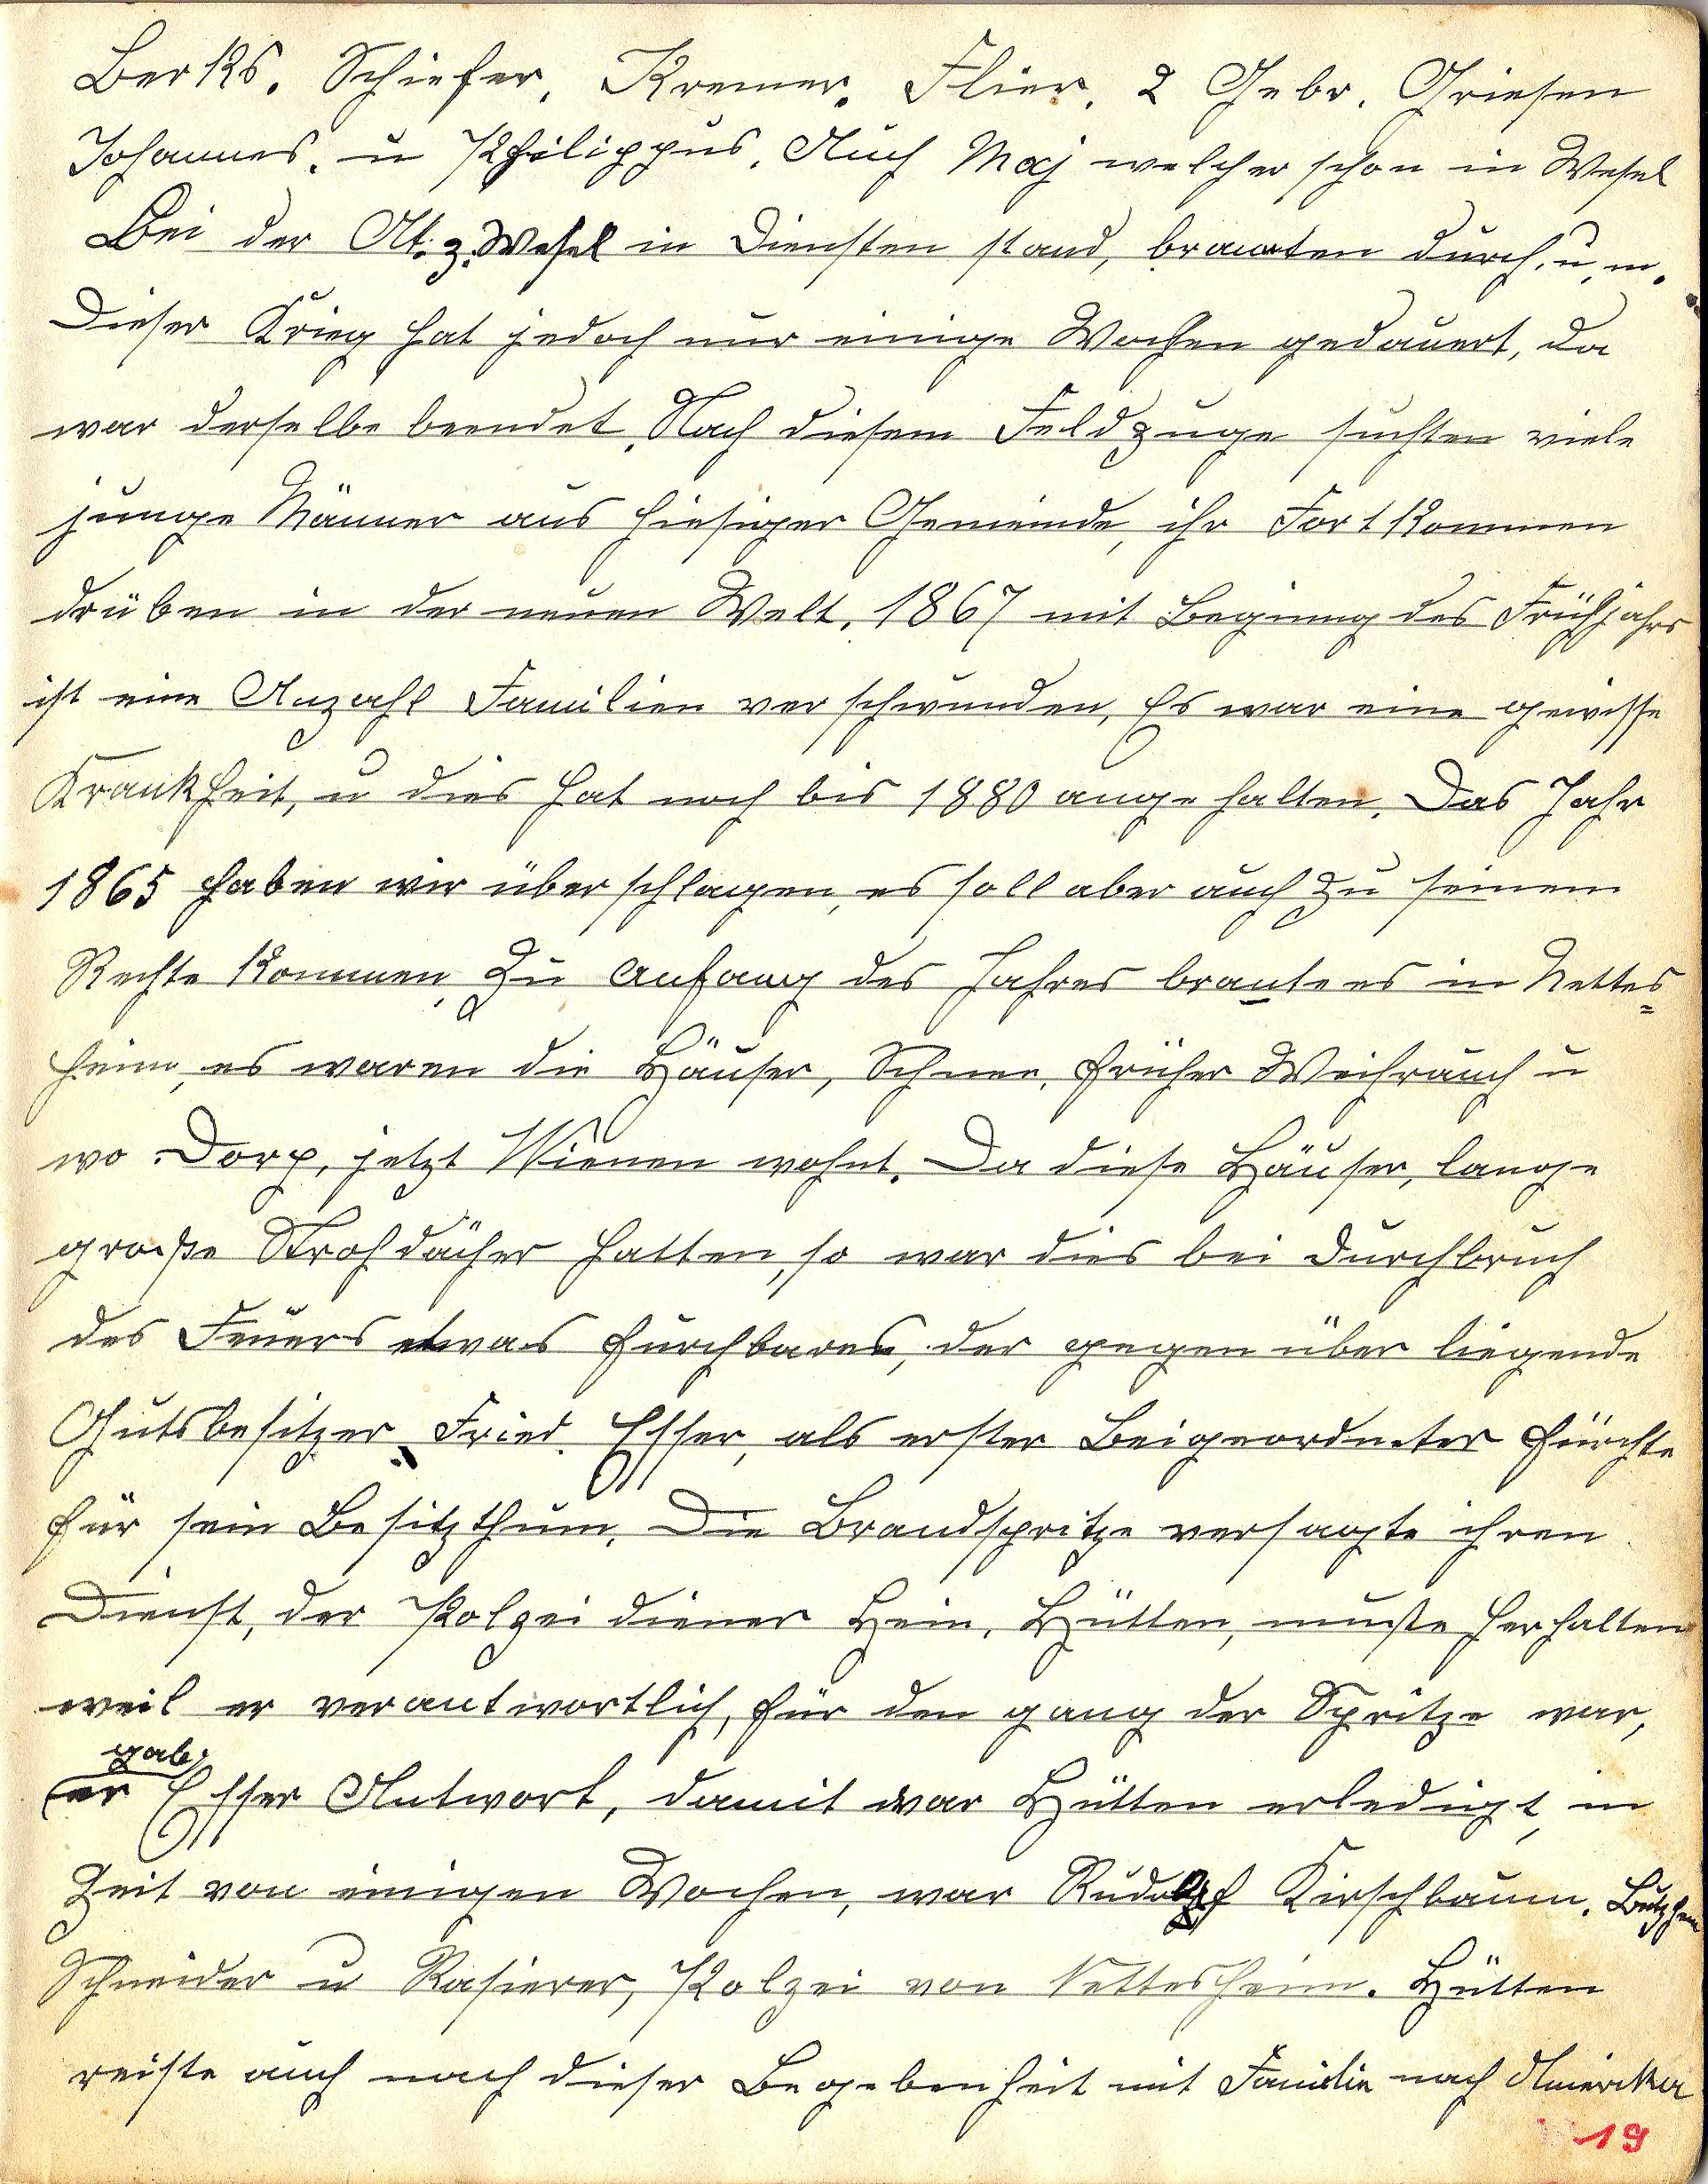 Berks. Schiefer, Kremer. Flier, 2 Gebr. Griesen
Johannes. u Philippus. Auch Maj welcher schon in Wesel
Bei der At. z. Wesel in Diensten stand, branten durch. u. m.
Dieser Krieg hat jedoch nur einige Wochen gedauert, da
war derselbe beendet. Nach diesem Feldzuge suchten viele
junge Männer aus hiesiger Gemeinde, ihr Fortkommen
drüben in der neuen Welt. 1867 mit Beginng des Frühjahrs
ist eine Anzahl Familien verschwunden, Es war eine gewisse
Krankheit, u dies hat noch bis 1880 angehalten. Das Jahr
1865 haben wir überschlagen, es soll aber auch zu seinem
Rechte kommen, Zu Anfang des Jahres brantees in Nettes=
heim, es waren die Häuser, Schnee, früher Weihrauch u
wo Dorp, jetzt Wienen wohnt. Da diese Häuser, lange
große Strohdächer hatten, so war dies bei Durchbruch
des Feuers etwas furchbares, der gegenüber liegende
Gutsbesitzer Fried. Esser, als erster Beigeordneter fürchte
für sein Besitzthum. Die Brandspritze versagte ihren
Dienst, der Polzei diener Hein. Hütten, mußte herhalten
weil er verantwortlich, für den gang der Spritze war,
gab
er Esser Antwort, damit war Hütten erledigt, in
Zeit von einigen Wochen, war Rudolf Kirschbaum. Butzheim
Schneider u Rasierer, Polzei von Nettesheim. Hütten
reiste auch nach dieser Begebenheit mit Familie nach Amerika
19